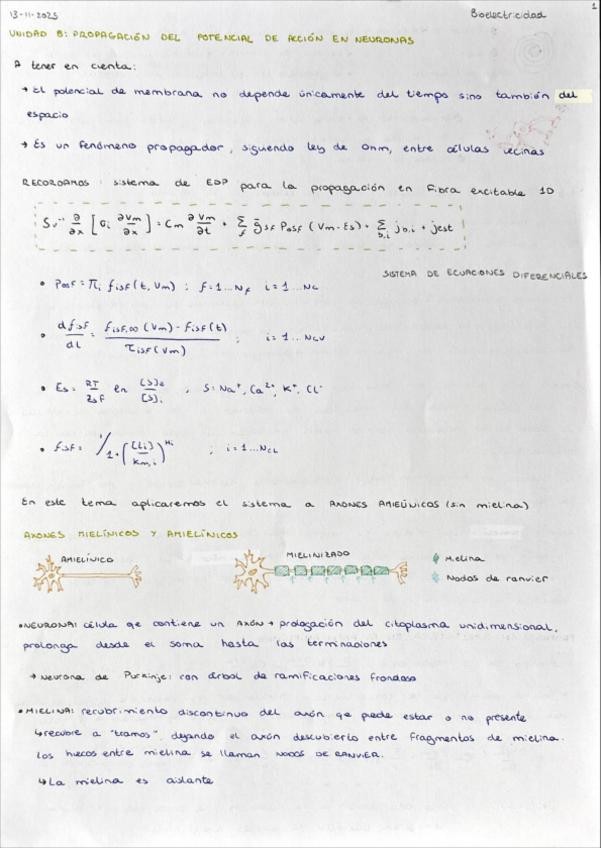 1
13-11-2025
Bioelectricidad
UNIDAD 8: PROPAGACIÓN DEL POTENCIAL DE ACCIÓN EN NEURONAS
A tener en cuenta:
→ El potencial de membrana no depende únicamente del tiempo sino también del
espacio
→ Es un fenómeno propagador, siguiendo ley de Ohm, entre células vecinas
RECORDAMOS: sistema de EDP para la propagación en fibra excitable 1D
Sv⁻¹ ∂/∂x [σi ∂Vm/∂x] = Cm ∂Vm/∂t + Σf ḡsf Posf (Vm-Es) + Σb,i jb,i + jest
SISTEMA DE ECUACIONES DIFERENCIALES
• Posf = Πi fisf(t, Vm) ; f=1...Nf i=1...NG
• dfisf/dt = fisf,∞ (Vm) - fisf(t) / τisf(Vm) ; i=1...NGV
• Es = RT/zsF ln [S]e/[S]i , S: Na⁺, Ca²⁺, K⁺, Cl⁻
• fisf = 1/1+([Li]/km,i)^Hi ; i=1...NGL
En este tema aplicaremos el sistema a AXONES AMIELÍNICOS (sin mielina)
AXONES MIELÍNICOS Y AMIELÍNICOS
AMIELÍNICO
MIELINIZADO
Mielina
Nodos de ranvier
• NEURONA: célula qe contiene un AXÓN → prologación del citoplasma unidimensional,
prolonga desde el soma hasta las terminaciones
→ Neurona de Purkinje: con árbol de ramificaciones frondoso
• MIELINA: recubrimiento discontinuo del axón qe puede estar o no presente
↳ recubre a "tramos", dejando el axón descubierto entre fragmentos de mielina.
Los huecos entre mielina se llaman NODOS DE RANVIER.
↳ La mielina es aislante